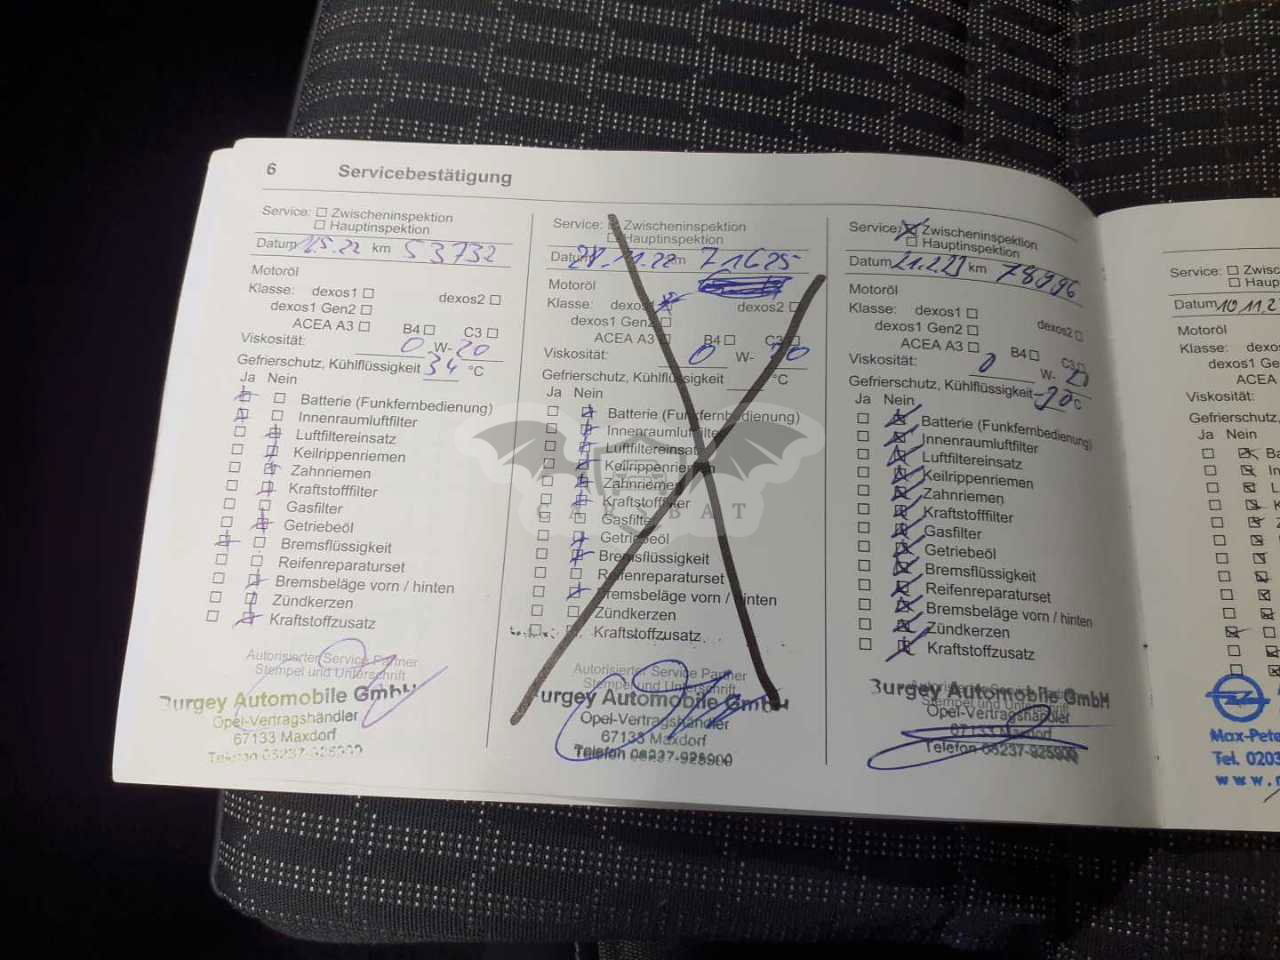 6 Servicebestätigung
Service: Zwischeninspektion
Hauptinspektion
Datum km 53732
Motoröl
Klasse: dexos1 dexos2
dexos1 Gen2
ACEA A3 B4 C3
Viskosität: 0 W- 20
Gefrierschutz, Kühlflüssigkeit 34 °C
Ja Nein
Batterie (Funkfernbedienung)
Innenraumluftfilter
Luftfiltereinsatz
Keilrippenriemen
Zahnriemen
Kraftstofffilter
Gasfilter
Getriebeöl
Bremsflüssigkeit
Reifenreparaturset
Bremsbeläge vorn / hinten
Zündkerzen
Kraftstoffzusatz
Autorisierter Service Partner
Stempel und Unterschrift
Burgey Automobile GmbH
Opel-Vertragshändler
67133 Maxdorf
Telefon 06237-925900
Service: Zwischeninspektion
Hauptinspektion
Datum 28.11.22 km 71625
Motoröl
Klasse: dexos1 dexos2
dexos1 Gen2
ACEA A3 B4 C3
Viskosität: 0 W-
Gefrierschutz, Kühlflüssigkeit °C
Ja Nein
Batterie (Funkfernbedienung)
Innenraumluftfilter
Luftfiltereinsatz
Keilrippenriemen
Zahnriemen
Kraftstofffilter
Gasfilter
Getriebeöl
Bremsflüssigkeit
Reifenreparaturset
Bremsbeläge vorn / hinten
Zündkerzen
Kraftstoffzusatz
Autorisierter Service Partner
Stempel und Unterschrift
Burgey Automobile GmbH
Opel-Vertragshändler
67133 Maxdorf
Telefon 06237-925900
CARSBAT
Service: Zwischeninspektion
Hauptinspektion
Datum 21.2.23 km 78996
Motoröl
Klasse: dexos1
dexos1 Gen2 dexos2
ACEA A3 B4 C3
Viskosität: 0 W-
Gefrierschutz, Kühlflüssigkeit °C
Ja Nein
Batterie (Funkfernbedienung)
Innenraumluftfilter
Luftfiltereinsatz
Keilrippenriemen
Zahnriemen
Kraftstofffilter
Gasfilter
Getriebeöl
Bremsflüssigkeit
Reifenreparaturset
Bremsbeläge vorn / hinten
Zündkerzen
Kraftstoffzusatz
Burgey Automobile GmbH
Opel-Vertragshändler
67133 Maxdorf
Telefon 06237-925900
Service: Zwisc
Haup
Datum 10.11.2
Motoröl
Klasse: dexo
dexos1 Ge
ACEA
Viskosität:
Gefrierschutz,
Ja Nein
Max-Pete
Tel. 0203
www.